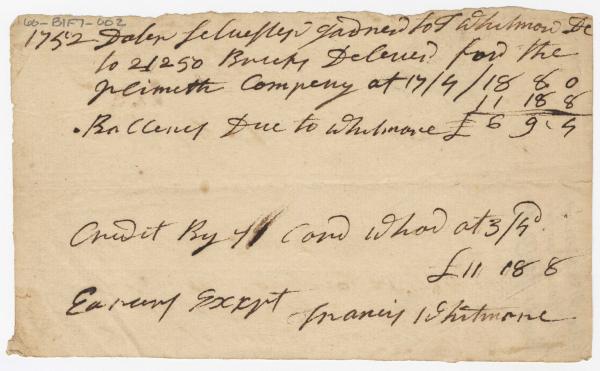 60-B1F7-002
1752 Docter Selvester gadner to F Whitmor Dr
to 21250 Bricks Deleuerd for the
plimeth Compeny at 17/4 / 18 8 0
11 18 8
Ballenes Due to Whitmore £ 6 9 4
Credit By 71 Cord Whod at 3/4d
£11 18 8
Earours Exxpt
Francis Whitmore